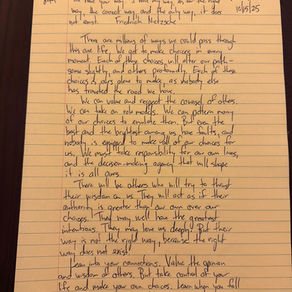 "You have your way. I have my way. As for the right
way, the correct way, and the only way, it does
not exist. Friedrich Nietzsche
10/15/25
There are millions of ways we could pass through
this one life. We get to make choices in every
moment. Each of these choices will alter our path-
some slightly, and others profoundly. Each of these
choices is ours alone to make, as nobody else
has traveled the road we have.
We can value and respect the counsel of others.
We can take on role models. We can pattern many
of our choices to emulate them. But even the
best and the brightest among us have faults, and
nobody is equipped to make all of our choices for
us. We must take responsibility for our own lives,
and the decision-making agency that will shape
it is all ours.
There will be others who will try to thrust
their wisdom on us. They will act as if their
authority is greater than our own over our
choices. They may well have the greatest
intentions. They may love us deeply. But their
way is not the right way, because the right
way does not exist.
Lean into your connections. Value the opinion
and wisdom of others. But take control of your
life and make your own choices. Learn when you fall